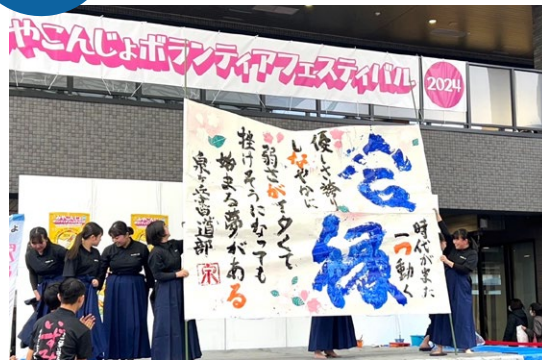 やこんじょボランティアフェスティバル
2024
時代がまた
一つ動く
縁
優しさ誇り
しなやかに
弱さが多くて
挫けそうになっても
始まる夢がある
泉ヶ丘書道部
泉